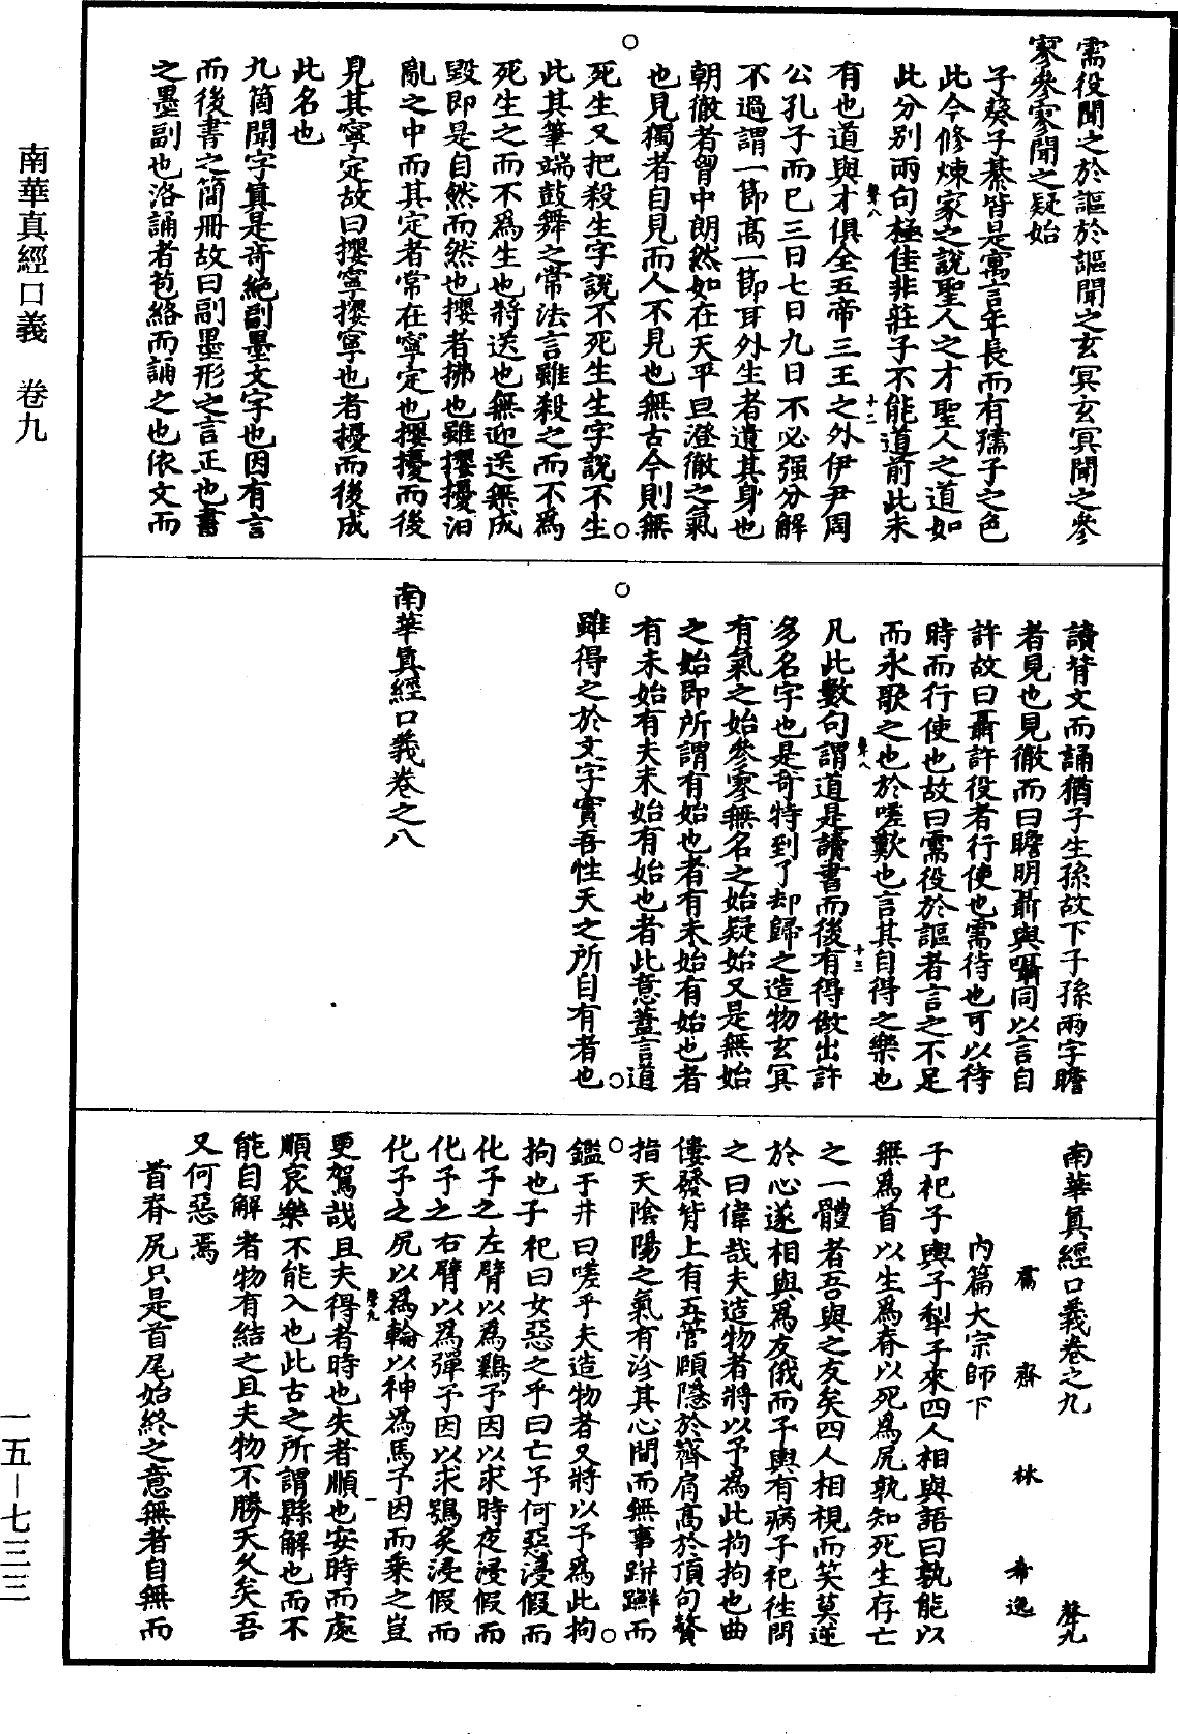 需役聞之於謳於謳聞之玄冥玄冥聞之參
寥參寥聞之疑始
子葵子綦皆是寓言年長而有孺子之色
此今修煉家之說聖人之才聖人之道如
此分別兩句極佳非莊子不能道前此未
有也道與才俱全五帝三王之外伊尹周
公孔子而已三日七日九日不必强分解
不過謂一節高一節耳外生者遺其身也
朝徹者胷中朗然如在天平旦澄徹之氣
也見獨者自見而人不見也無古今則無
死生又把殺生字說不死生生字說不生
此其筆端鼓舞之常法言雖殺之而不爲
死生之而不爲生也將送也無迎送無成
毀即是自然而然也攖者拂也雖攖擾汩
亂之中而其定者常在寧定也攖擾而後
見其寧定故曰攖寧攖寧也者擾而後成
此名也
九箇聞字真是奇絕副墨文字也因有言
而後書之簡冊故曰副墨形之言正也書
之墨副也洛誦者苞絡而誦之也依文而
讀背文而誦猶子生孫故下子孫兩字瞻
者見也見徹而曰瞻明聶與囁同以言自
許故曰聶許役者行使也需待也可以待
時而行使也故曰需役於謳者言之不足
而永歌之也於嗟歎也言其自得之樂也
凡此數句謂道是讀書而後有得做出許
多名字也是奇特到了却歸之造物玄冥
有氣之始參寥無名之始疑始又是無始
之始即所謂有始也者有未始有始也者
有未始有夫未始有始也者此意蓋言道
雖得之於文字實吾性天之所自有者也
南華真經口義卷之八
南華真經口義卷之九 聲九
鬳齋林希逸
內篇大宗師下
子祀子輿子犁子來四人相與語曰孰能以
無爲首以生爲脊以死爲尻孰知死生存亡
之一體者吾與之友矣四人相視而笑莫逆
於心遂相與爲友俄而子輿有病子祀往問
之曰偉哉夫造物者將以予爲此拘拘也曲
僂發背上有五管頤隱於齊肩高於頂句贅
指天陰陽之氣有沴其心閒而無事跰𨇤而
鑑于井曰嗟乎夫造物者又將以予爲此拘
拘也子祀曰女惡之乎曰亡予何惡浸假而
化予之左臂以爲鷄予因以求時夜浸假而
化予之右臂以爲彈予因以求鴞炙浸假而
化予之尻以爲輪以神爲馬予因而乘之豈
更駕哉且夫得者時也失者順也安時而處
順哀樂不能入也此古之所謂縣解也而不
能自解者物有結之且夫物不勝天久矣吾
又何惡焉
首脊尻只是首尾始終之意無者自無而
南華真經口義　卷九
一五－七三三
聲八
十二
聲八
十三
聲九
一